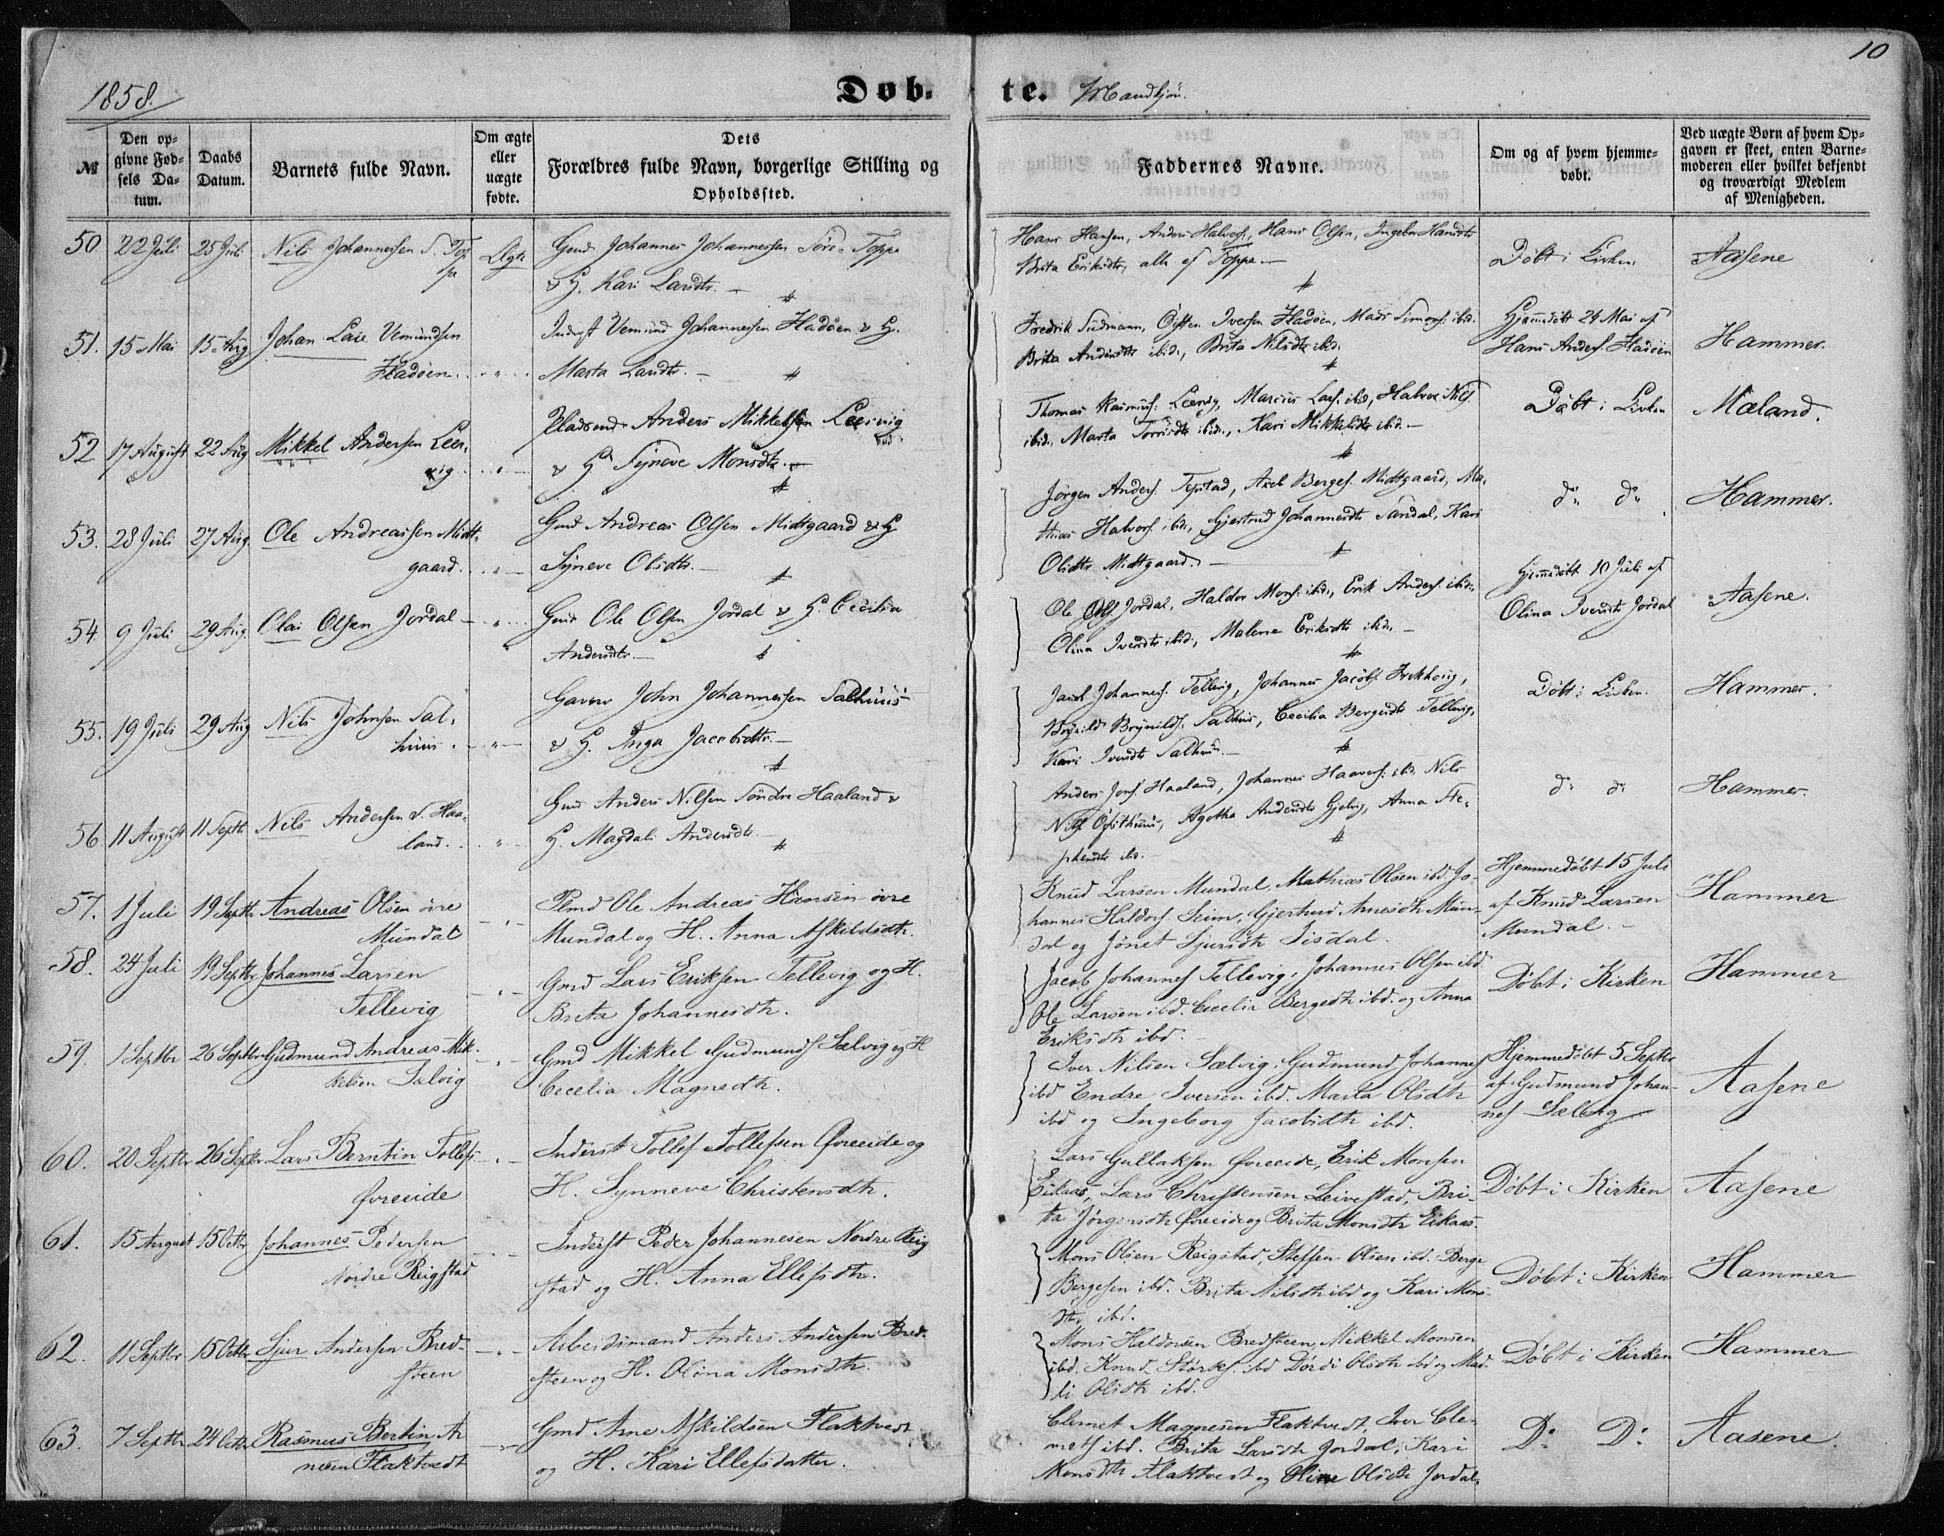 1858.
Døb-
te. Mandkjøn.
10
№
Den op-
givne Fød-
sels Da-
tum.
Daabs
Datum.
Barnets fulde Navn.
Om ægte
eller
uægte
fødte.
Dets
Forældres fulde Navn, borgerlige Stilling og
Opholdssted.
Faddernes Navne.
Om og af hvem hjemme-
døbt.
Ved uægte Børn af hvem Op-
gaven er skeet, enten Barne-
moderen eller hvilket bekjendt
og troværdigt Medlem
af Menigheden.
50. 22 Juli 25 Juli Nils Johannessen S. Top-
pe Ægte
Gmd Johannes Johannessen Søre Toppe
& H. Kari Larsdtr.
Hans Hansen, Anders Halvors., Hans Olsen, Ingebor Hansdtr
Brita Eriksdtr, alle af Toppe.
Døbt i Kirken.
Aasene
51. 15 Mai 15 Aug Johan Laie Vemundsen
Fladøen.
Inderst Vemund Johannessen Fladøen & H.
Marta Larsdtr.
Fredrik Sudmann, Østen Iversen Fladøen, Mads Simons. ibid.
Brita Andersdtr ibid., Brita Nilsdtr ibid.
Hjemmedøbt 24 Mai af
Hans Anders. Fladøen
Hammer.
52 17 August 22 Aug Mikkel Andersen Leer-
vig.
Pladsmd Anders Mikkelsen Leervig
& H. Syneve Monsdtr.
Thomas Rasmus. Leervig, Marcus Lars. ibid, Halvor Nils.
ibid., Marta Torrisdtr ibid., Kari Mikkelsdtr ibid.
Døbt i Kirken
Mæland.
53. 28 Juli 27 Aug. Ole Andreassen Midt-
gaard.
Gmd Andreas Olsen Midtgaard & H.
Syneve Olsdtr.
Jørgen Anders. Tepstad, Axel Berges. Midtgaard, Ma-
thias Halvors. ibid., Gjertrud Johannesdtr Sandal, Kari
Olsdtr Midtgaard.
do do
Hammer.
54. 9 Juli 29 Aug. Olai Olsen Jordal
Gmd Ole Olsen Jordal & H. Cecilia
Andersdtr.
Ole Ols. Jordal, Haldor Mons. ibid., Erik Anders. ibid.,
Olina Iversdtr ibid., Malene Eriksdtr ibid.
Hjemmedøbt 10 Juli af
Olina Iversdtr Jordal
Aasene.
55. 19 Juli 29 Aug Nils Johnsen Sal-
huus.
Gaver John Johannessen Salhuus
& H. Inga Jacobsdtr.
Jacob Johannes. Tellevig, Johannes Jacobs.
Brynild Brynilds. Salhus, Cecilia Bergesdtr Tellevig,
Kari Iversdtr Salhuus.
Døbt i Kirken.
Hammer.
56 11 August 11 Septb Nils Andersen S. Haa-
land.
Gmd Anders Nilsen Søndre Haaland &
H. Magdali Andersdtr.
Anders Jons. Haaland, Johannes Haavors. ibid, Nils
Nils. Øvsthuus, Agotha Andersdtr Gjelvig, Anna Ste-
phensdtr ibid.
do do
Hammer.
57. 1 Juli 19 Septbr Andreas Olsen øvre
Mundal
Plmd Ole Andreas Hansen øvre
Mundal og H. Anna Askildsdtr.
Knud Larsen Mundal, Mathias Olsen ibd Jo-
hannes Haldors. Seim, Gjertrud Arnesdtr Mun-
dal og Jønet Sjursdtr Isdal.
Hjemmedøbt 15 Juli
af Knud Larsen
Mundal.
Hammer
58. 24 Juli 19 Septbr Johannes Larsen
Tellevig
Gmd Lars Eriksen Tellevig og H.
Brita Johannesdtr.
Jacob Johannes Tellevig, Johannes Olsen ibd
Ole Larsen ibd. Cecelia Bergesdtr ibd. og Anna
Eriksdtr ibd.
Døbt i Kirken
Hammer
59. 1 Septbr 26 Septbr Gudmund Andreas Mik-
kelsen Sælvig
Gmd Mikkel Gudmunds Sælvig og H
Cecelia Magnedtr.
Iver Nilsen Sælvig, Gudmund Johannes
ibd Endre Iversen ibd. Marta Olsdtr
ibd og Ingeborg Jacobsdtr ibd.
Hjemmedøbt 5 Septbr
af Gudmund Johan-
nes Sælvig
Aasene
60. 20 Septbr 26 Septbr Lars Berntin Tollefs.
Øvreeide
Inderst Tollef Tollefsen Øvreeide og
H. Synneve Christensdtr.
Lars Gullaksen Øvreeide, Erik Monsen
Eikaas, Lars Christensen Leivestad, Bri-
ta Jørgensdtr Øvreeide og Brita Monsdtr Eikaas.
Døbt i Kirken
Aasene
61. 15 August 15 Octbr Johannes Pedersen
Nordre Reigstad
Inderst Peder Johannesen Nordre Reig
stad og H. Anna Ellefsdtr.
Mons Olsen Reigstad, Steffen Olsen ibd. Berge
Bergesen ibd. Brita Nilsdtr ibd og Kari Mons-
dtr ibd.
Døbt i Kirken
Hammer
62. 11 Septbr 15 Octbr Sjur Andersen Bred-
steen
Arbeidsmand Anders Andersen Bred-
steen og H. Olina Monsdtr.
Mons Haldorsen Bredsteen, Mikkel Monsen
ibd. Knud Størks. ibd Dordi Olsdtr ibd og Mad-
li Olsdtr ibd.
Døbt i Kirken
Hammer
63. 7 Septbr 24 Octbr Rasmus Bertin Ar
nesen Flaktvedt
Gmd Arne Askildsen Flaktvedt
og H. Kari Ellefsdatter.
Clemet Magnesen Flaktvedt, Iver Cle-
mets ibd. Brita Larsdtr Jordal, Kari
Monsdtr Flaktvedt og Oline Olsdtr Jordal.
D: D:
Aasene.